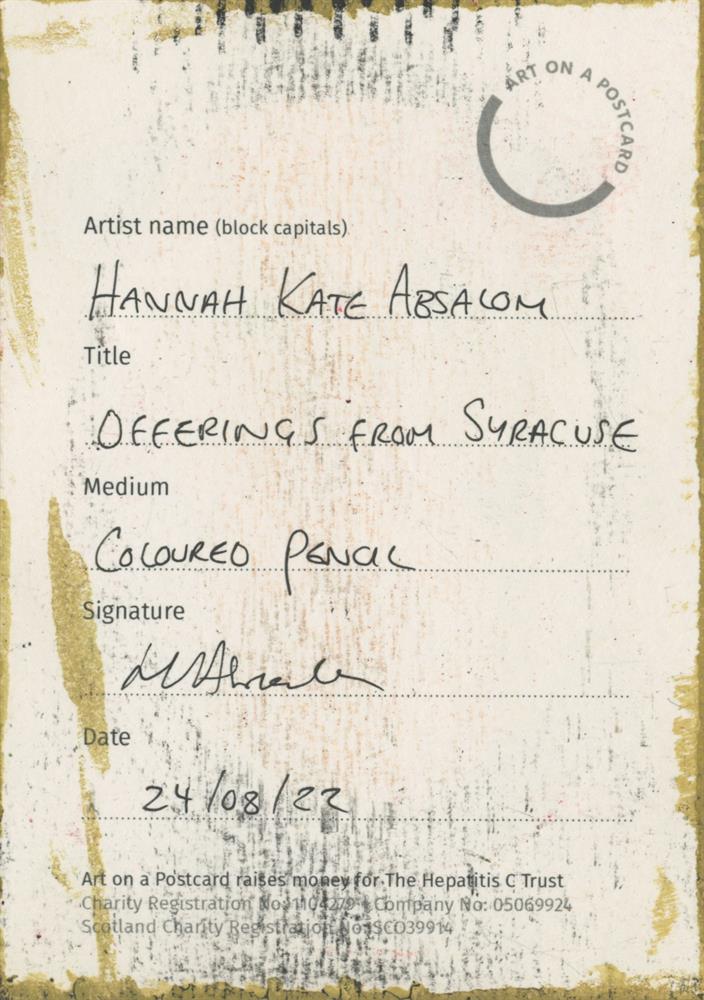 ART ON A POSTCARD
Artist name (block capitals)
HANNAH KATE ABSALOM
Title
OFFERINGS FROM SYRACUSE
Medium
COLOURED PENCIL
Signature
Date
24/08/22
Art on a Postcard raises money for The Hepatitis C Trust
Charity Registration No: 1104279 | Company No: 05069924
Scotland Charity Registration No: SC039914